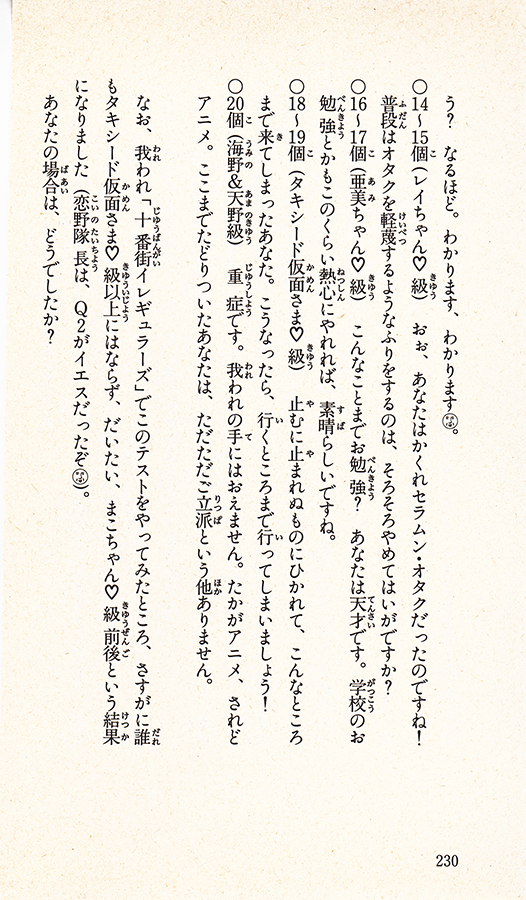 う? なるほど。わかります、わかります。
○14〜15個(レイちゃん♡級) おぉ、あなたはかくれセラムン・オタクだったのですね!
普段はオタクを軽蔑するようなふりをするのは、そろそろやめてはいかがですか?
○16〜17個(亜美ちゃん♡級) こんなことまでお勉強? あなたは天才です。学校のお
勉強とかもこのくらい熱心にやれれば、素晴らしいですね。
○18〜19個(タキシード仮面さま♡級) 止むに止まれぬものにひかれて、こんなところ
まで来てしまったあなた。こうなったら、行くところまで行ってしまいましょう!
○20個(海野&天野級) 重症です。我われの手にはおえません。たかがアニメ、されど
アニメ。ここまでたどりついたあなたは、ただただご立派という他ありません。
なお、我われ「十番街イレギュラーズ」でこのテストをやってみたところ、さすがに誰
もタキシード仮面さま♡級以上にはならず、だいたい、まこちゃん♡級前後という結果
になりました(恋野隊長は、Q2がイエスだったぞ)。
あなたの場合は、どうでしたか?
230